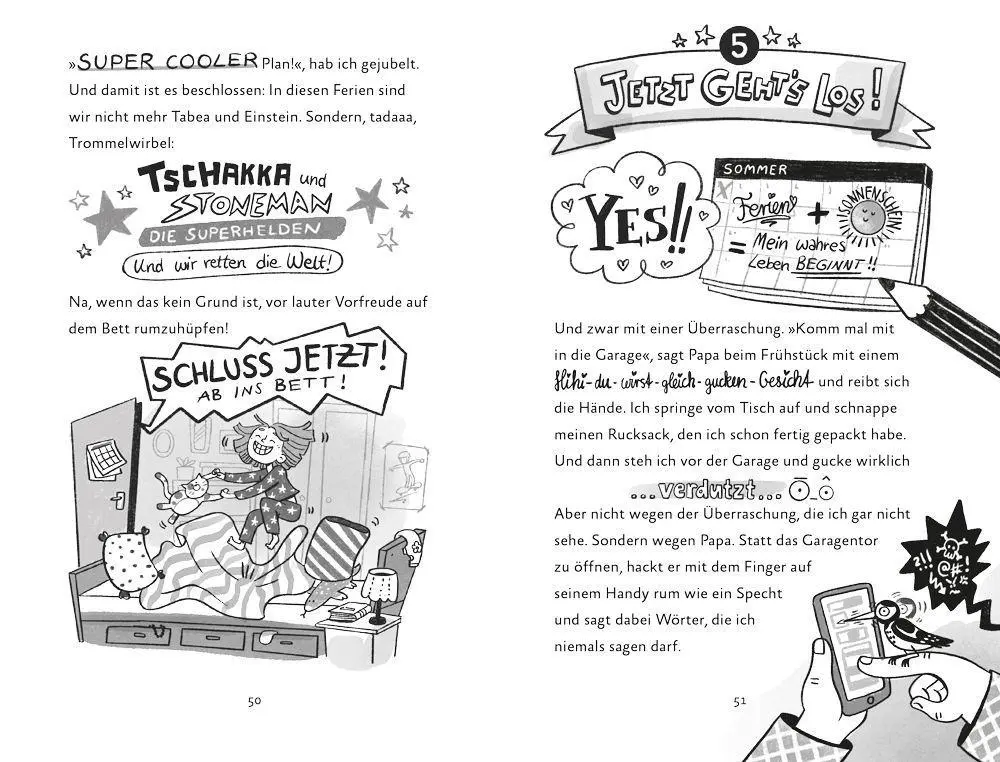 »SUPER COOLER Plan!«, hab ich gejubelt.
Und damit ist es beschlossen: In diesen Ferien sind
wir nicht mehr Tabea und Einstein. Sondern, tadaaa,
Trommelwirbel:
TSCHAKKA und
STONEMAN
DIE SUPERHELDEN
Und wir retten die Welt!
Na, wenn das kein Grund ist, vor lauter Vorfreude auf
dem Bett rumzuhüpfen!
SCHLUSS JETZT!
AB INS BETT!
50
5
JETZT GEHT'S LOS!
YES!!
SOMMER
X
Ferien + SONNENSCHEIN
= Mein wahres
Leben BEGINNT!!
Und zwar mit einer Überraschung. »Komm mal mit
in die Garage«, sagt Papa beim Frühstück mit einem
Hihi-du-wirst-gleich-gucken-Gesicht und reibt sich
die Hände. Ich springe vom Tisch auf und schnappe
meinen Rucksack, den ich schon fertig gepackt habe.
Und dann steh ich vor der Garage und gucke wirklich
...verdutzt... Ō_ô
Aber nicht wegen der Überraschung, die ich gar nicht
sehe. Sondern wegen Papa. Statt das Garagentor
zu öffnen, hackt er mit dem Finger auf
seinem Handy rum wie ein Specht
und sagt dabei Wörter, die ich
niemals sagen darf.
?!!
@#!
51